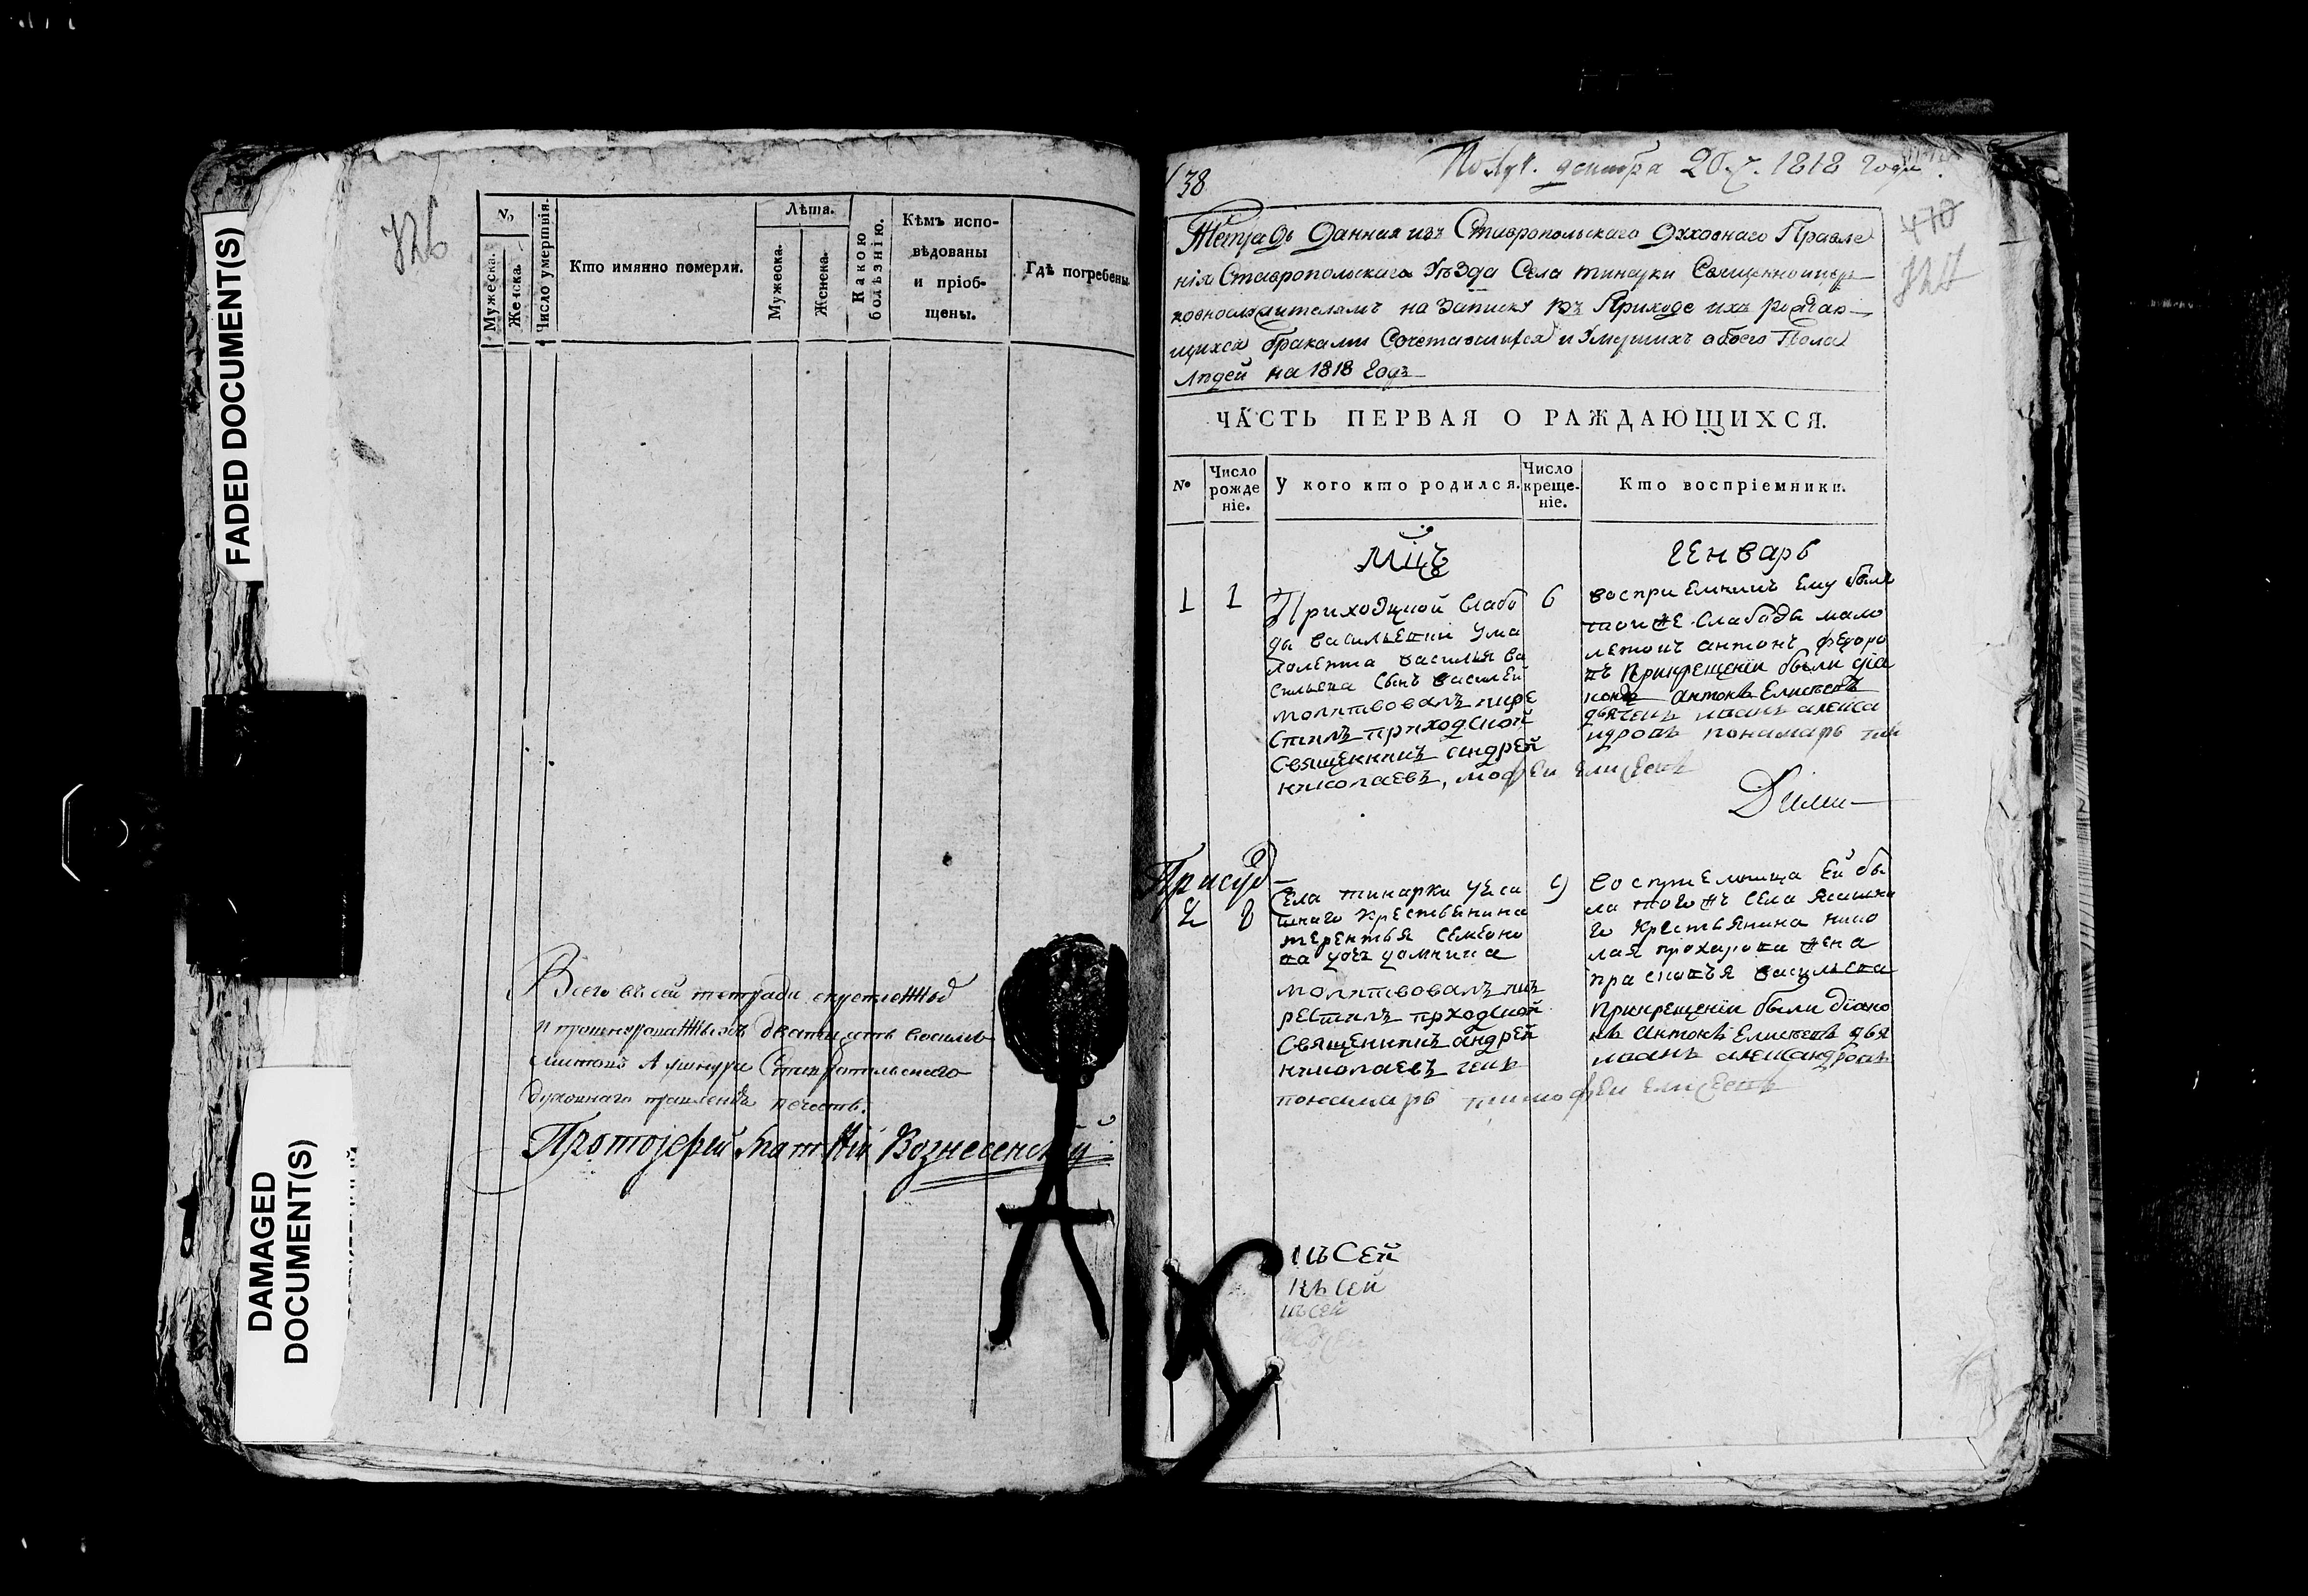 FADED DOCUMENT(S)
DAMAGED
DOCUMENT(S)
№
Мужеска.
Женска.
Число умертвія.
Кто имянно померли.
Лѣта.
Мужеска.
Женска.
Какою
болѣзнію.
Кѣмъ испо-
вѣдованы
и пріоб-
щены.
Гдѣ погребены.
Всего въ сей тетради
листовъ Ставропольскаго
духовнаго правленія печать.
Протоіерей Вознесенскій
138
Получ. декабря 20 ч. 1818 года
Тетрадь Данная изъ Ставропольскаго Духовнаго Правле
нія Ставропольскаго Уѣзда Села Священноцер-
ковнослужителямъ на Записку въ Приходе ихъ рождаю-
щихся браками Сочетавшихся и Умершихъ обоего Пола
Людей на 1818 Годъ
ЧАСТЬ ПЕРВАЯ О РАЖДАЮЩИХСЯ.
№
Число
рожде
ніе.
У кого кто родился.
Число
креще-
ніе.
Кто воспріемники.
Мцъ
Генварь
1
1
Приходской Слабо
ды васильевки
василья ва
сильева Сынъ василей
молитвовалъ и кре
стилъ приходской
Священникъ андрей
николаевъ,
6
восприемникъ Ему былъ
тои же Слабоды мало
летокъ антонъ федоро
въ Прикрещеніи были діа
конъ антонъ Елисеевъ
дьячекъ иванъ алекса
ндровъ понамарь ти
мофеи елисеевъ
2
8
Села
шнаго крестьянина
терентья семено
ва дочь домника
молитвовалъ и к
рестилъ приходской
Священникъ андрей
николаевъ
9
восприемница Ей бы
ла того жъ села ясашна
го крестьянина нико
лая прохорова жена
прасковья васильева
Прикрещеніи были діако
нъ антонъ Елисеевъ дья
чекъ иванъ александровъ
понамарь тимофеи елисеевъ
къ Сей
къ сей
къ сей